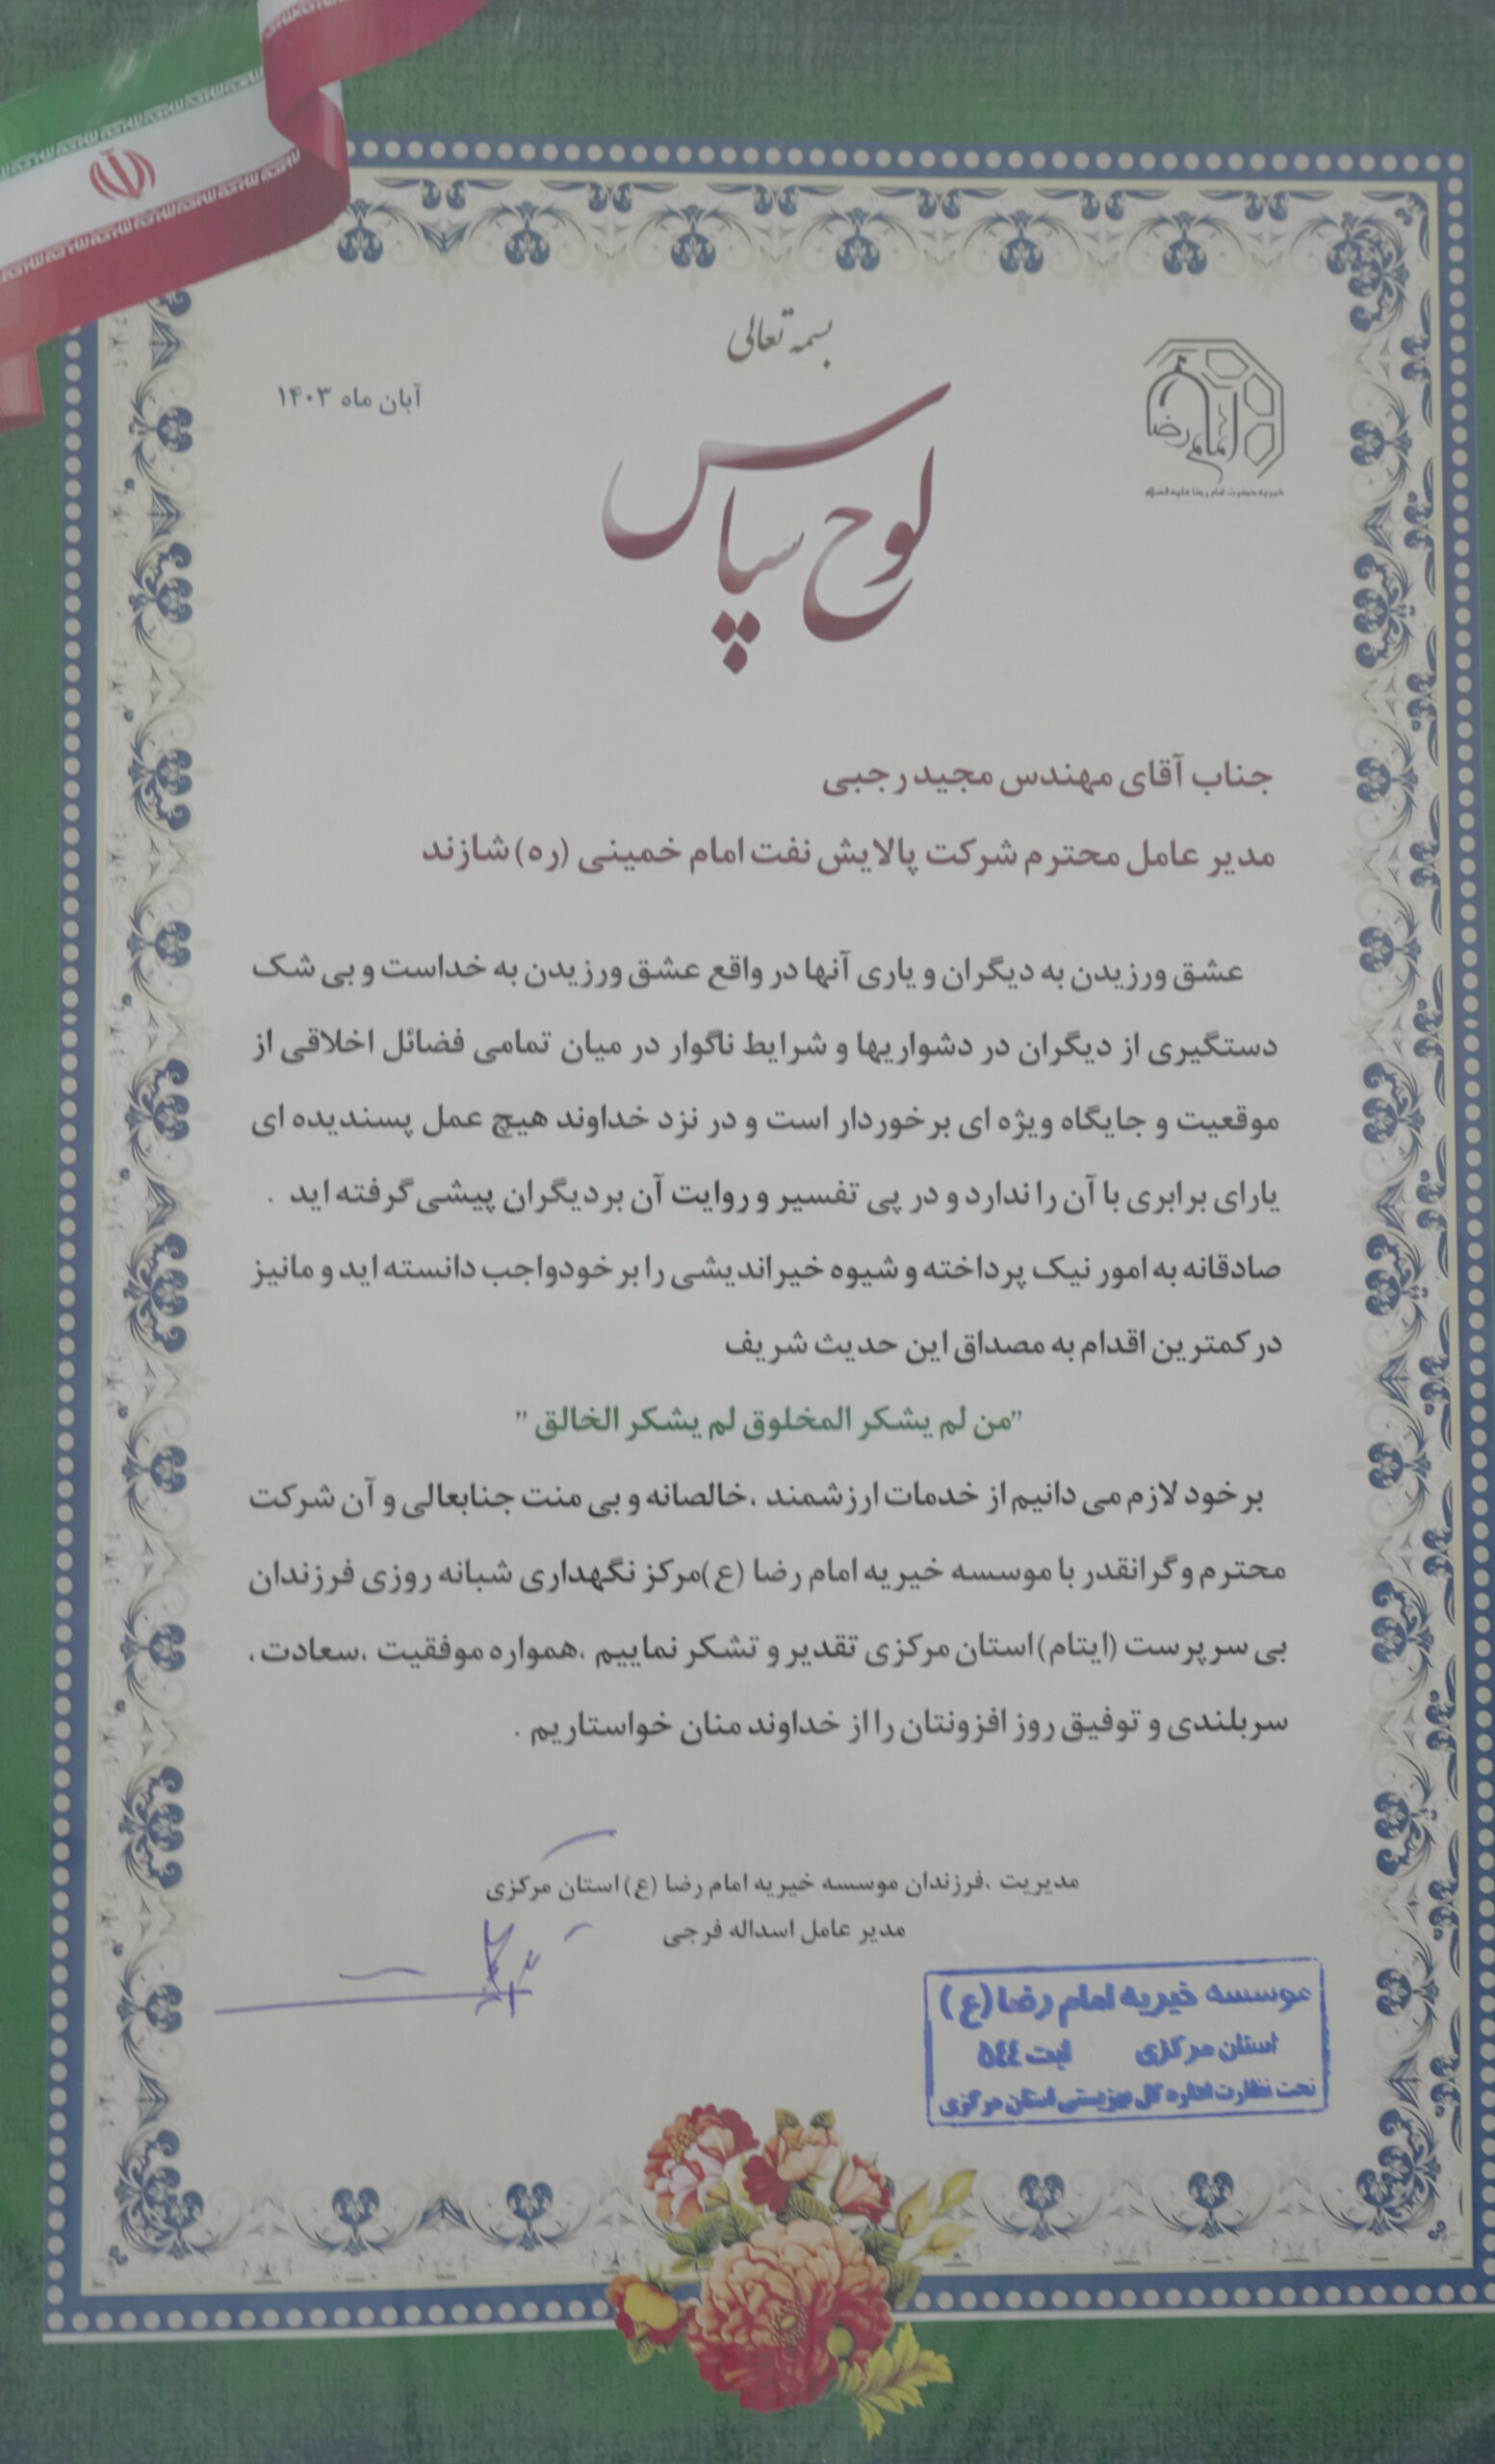 بسمه تعالی
آبان ماه ۱۴۰۳
امام رضا
خیریه حضرت امام رضا علیه السلام
لوح سپاس
جناب آقای مهندس مجید رجبی
مدیر عامل محترم شرکت پالایش نفت امام خمینی (ره) شازند
عشق ورزیدن به دیگران و یاری آنها در واقع عشق ورزیدن به خداست و بی شک
دستگیری از دیگران در دشواریها و شرایط ناگوار در میان تمامی فضائل اخلاقی از
موقعیت و جایگاه ویژه ای برخوردار است و در نزد خداوند هیچ عمل پسندیده ای
یارای برابری با آن را ندارد و در پی تفسیر و روایت آن بر دیگران پیشی گرفته اید .
صادقانه به امور نیک پرداخته و شیوه خیراندیشی را بر خودواجب دانسته اید و مانیز
در کمترین اقدام به مصداق این حدیث شریف
"من لم یشکر المخلوق لم یشکر الخالق "
بر خود لازم می دانیم از خدمات ارزشمند ،خالصانه و بی منت جنابعالی و آن شرکت
محترم و گرانقدر با موسسه خیریه امام رضا (ع)مرکز نگهداری شبانه روزی فرزندان
بی سرپرست (ایتام)استان مرکزی تقدیر و تشکر نماییم ،همواره موفقیت ،سعادت ،
سربلندی و توفیق روز افزونتان را از خداوند منان خواستاریم .
مدیریت ،فرزندان موسسه خیریه امام رضا (ع) استان مرکزی
مدیر عامل اسداله فرجی
موسسه خیریه امام رضا (ع)
استان مرکزی ثبت ۵۴۴
تحت نظارت اداره کل بهزیستی استان مرکزی